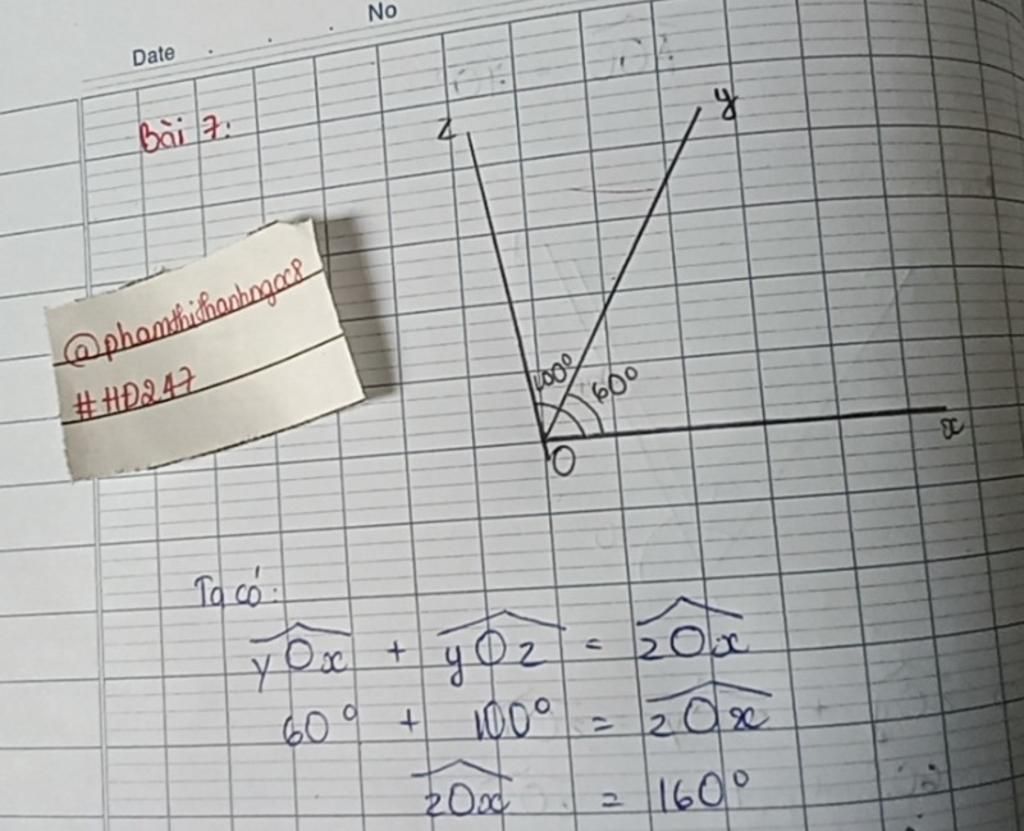 Date No
Bài 7:
z
y
@phamthithanhngoc8
#HĐ247
100°
60°
x
O
Ta có:
yOx + yOz = zOx
60° + 100° = zOx
zOx = 160°